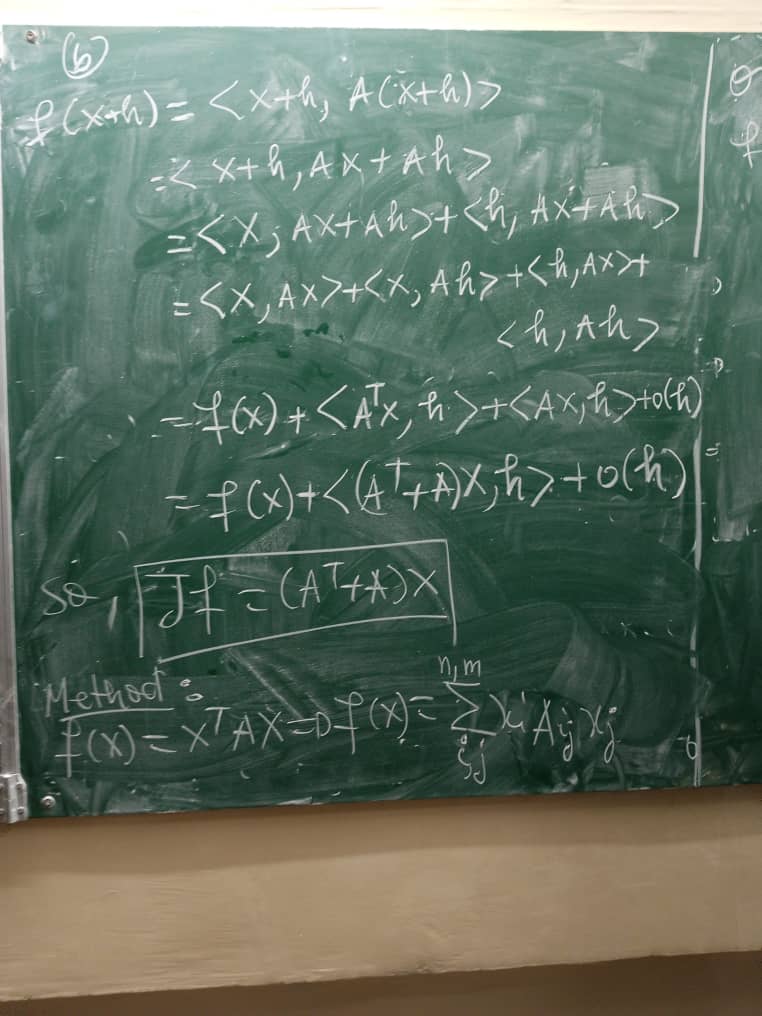 (6)
f(x+h) = <x+h, A(x+h)>
= <x+h, Ax+Ah>
= <x, Ax+Ah>+<h, Ax+Ah>
= <x, Ax>+<x, Ah>+<h, Ax>+
<h, Ah>
= f(x) + <Aᵀx, h>+<Ax, h>+o(h)
= f(x)+<(Aᵀ+A)x, h>+o(h)
So, Jf = (Aᵀ+A)x
Method:
n,m
f(x) = xᵀAx ⇒ f(x) = ∑ xi Aij xj
i,j